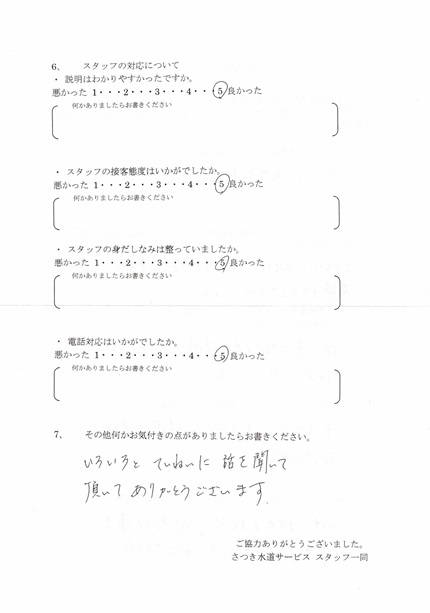 6、 スタッフの対応について
・ 説明はわかりやすかったですか。
悪かった 1・・・2・・・3・・・4・・・5 良かった
何かありましたらお書きください
・ スタッフの接客態度はいかがでしたか。
悪かった 1・・・2・・・3・・・4・・・5 良かった
何かありましたらお書きください
・ スタッフの身だしなみは整っていましたか。
悪かった 1・・・2・・・3・・・4・・・5 良かった
何かありましたらお書きください
・ 電話対応はいかがでしたか。
悪かった 1・・・2・・・3・・・4・・・5 良かった
何かありましたらお書きください
7、 その他何かお気付きの点がありましたらお書きください。
いろいろと ていねいに 話を聞いて
頂いて ありがとうございます。
ご協力ありがとうございました。
さつき水道サービス スタッフ一同